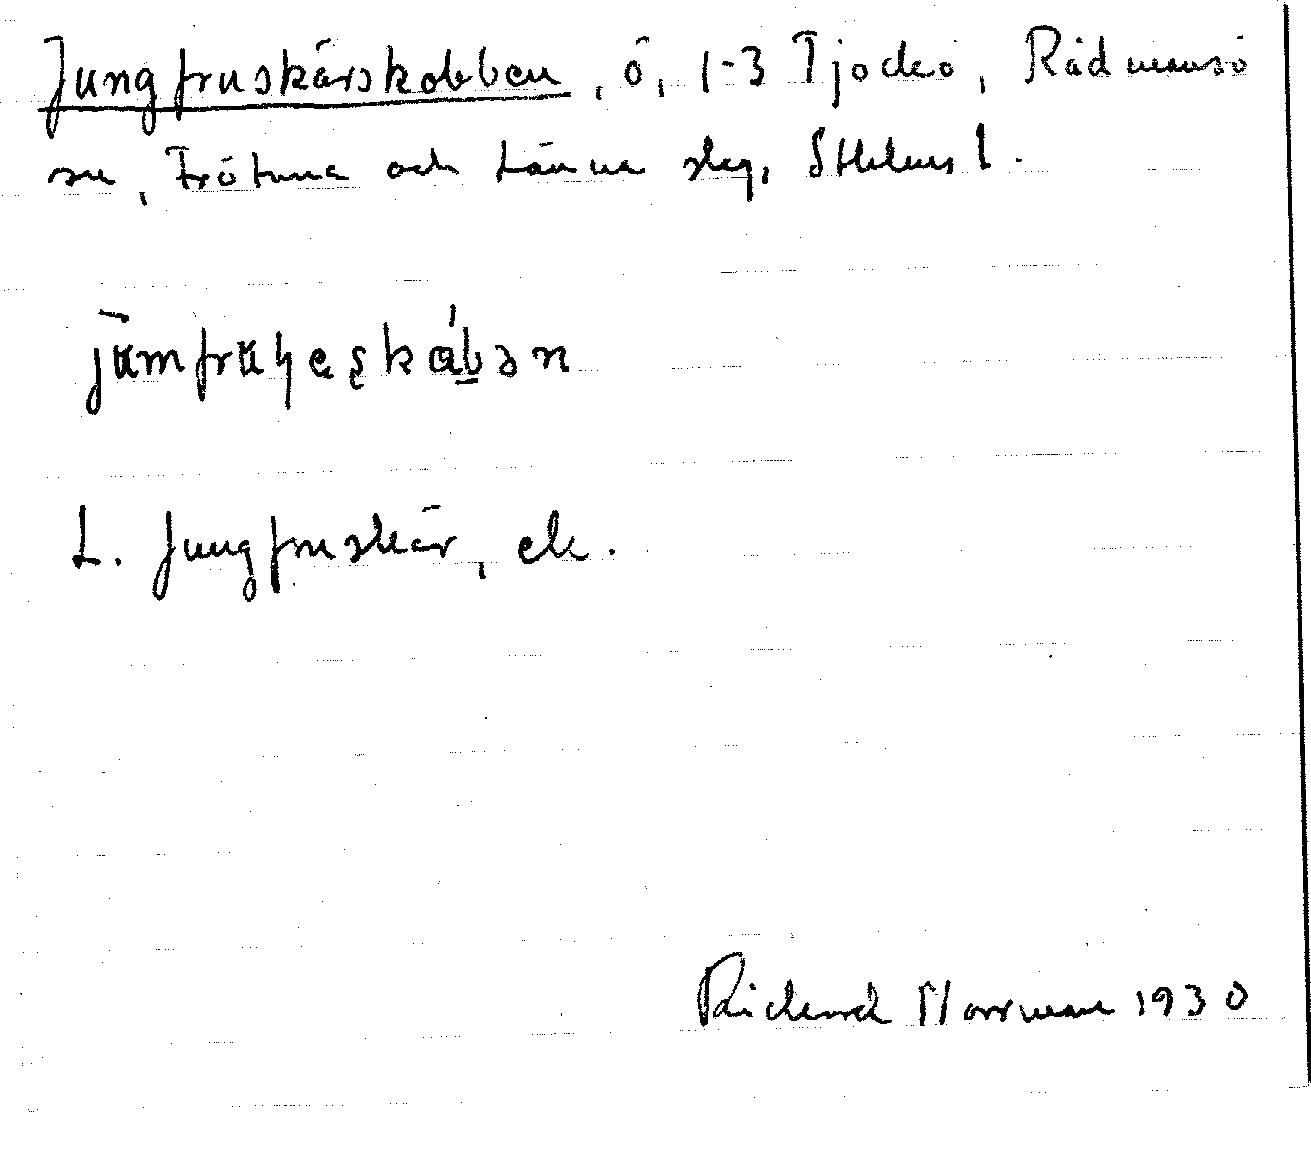 Jungfruskärskobben, ö, 1-3 Tjockö, Rådmansö
sn, Frötuna och Länna skg, Sthlms l.
L. Jungfruskär, ek.
Richard Norrman 1930